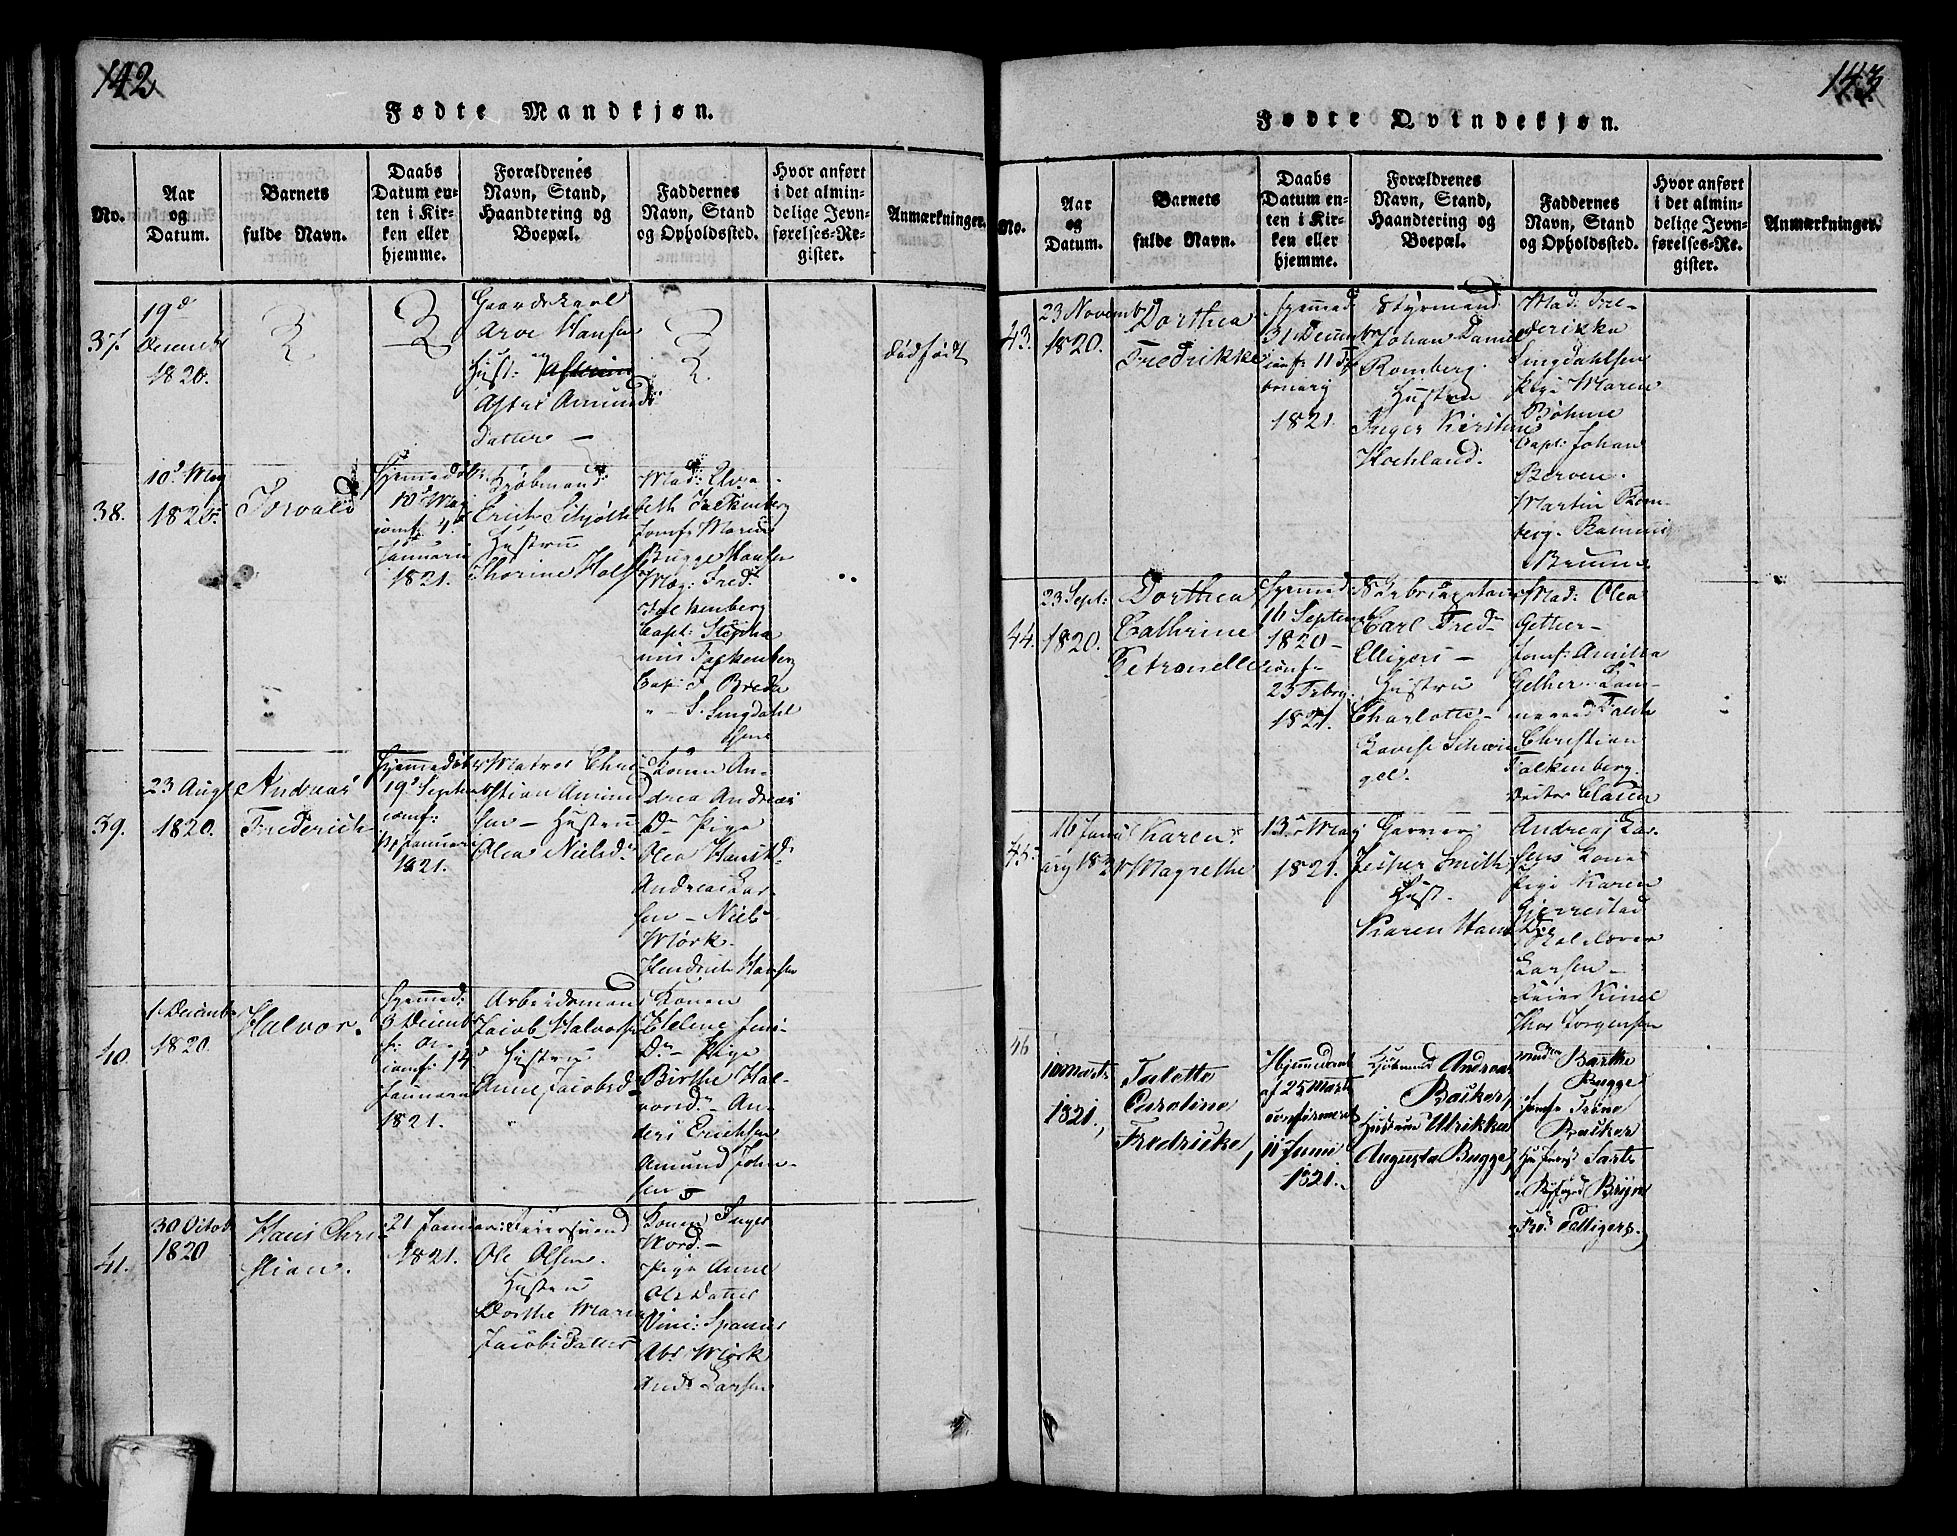 142
Fødte Mandkjøn.
No.
Aar
og
Datum.
Barnets
fulde Navn.
Daabs
Datum en-
ten i Kir-
ken eller
hjemme.
Forældrenes
Navn, Stand,
Haandtering og
Boepæl.
Faddernes
Navn, Stand
og Opholdssted.
Hvor anført
i det almin-
delige Jevn-
førelses-Re-
gister.
Anmærkninger.
37.
19d
Decembr
1820.
Gaardskarl
Arve Hansen
Hust:
Astri Amunds
Datter —
dødfødt
38.
10d May
1820
Torvald
Hjemmedøbt
10d May
conf: 4d
Januarii
1821.
Kjøbmand
Erich Schjøth
Hustru
Thorine Holst
Mad: Elisa-
beth Falkenberg
Jomf: Maren
Bugge Hansen
Mag: Fred:
Falkenberg
Capt: Stepha
nus Falkenberg
Capt: F Breda
" — S. Lingdahl
sen
39.
23 Augst
1820.
Andreas
Frederich
Hjemmedøbt
19d Septbr
conf:
Januarii
1821.
Matros Chri
stian Amund
sen — Hustru
Olea Nielsdr
Konen An-
drea Andreas
Dr Pige
Olea Hansdr
Andreas Lar-
sen — Niels
Mørk.
Hendrich Hansen
40.
1 Decembr
1820.
Halvor.
Hjemmed:
3 Decemb
conf: 14d
Januarii
1821.
Arbeidsmand
Jacob Halvorsen
Hustru
Anne Jacobsd
Konen
Helene Jens-
Dr — Pige
Birthe Hal-
vorsdr — An-
ders Erichsen
Amund Johan-
sen
41.
30 Octob
1820
Hans Chri
stian.
21 Januar:
1821.
Feiersvend
Ole Olsen.
Hustru
Dorthe Maria
Jacobs Datter
Konen Inger
Nord. —
Pige Anne
Ols Datter
Abr Mørk
Ands Larsen
143
Fødte Qvindekjøn.
No.
Aar
og
Datum.
Barnets
fulde Navn.
Daabs
Datum en-
ten i Kir-
ken eller
hjemme.
Forældrenes
Navn, Stand,
Haandtering og
Boepæl.
Faddernes
Navn, Stand
og Opholdssted.
Hvor anført
i det almin-
delige Jevn-
førelses-Re-
gister.
Anmærkninger.
43.
23 Novembr
1820.
Dorthea
Fredrikke
Hjemmed:
31 Decembr
conf: 11 Fe
bruary
1821.
Styrmand
Johan Daniel
Romberg.
Hustru
Inger Kirstine
Hochland.
Mad: Fre-
derikka
Lingdahlsen
Pige Maren
Böhme
Capt: Johan
Berven.
Martin Rom-
berg. Rasmus
Bruun
44.
23 Sept:
1820.
Dorthea
Cathrine
Petronelle
Hjemmed:
16 Septemb
1820 —
conf:
23 Febry.
1821.
Carl Fredr
Elligers —
Hustru
Charlotte
Lovise Schwin
gel.
Mad: Olea
Gether —
Jomf: Amilla
Gether
Falch
Christian
Falkenberg.
Peiter Clasen
45.
16 Janu
ary 1821
Karen
Magrethe
13 May
1821.
Garver
Jesper Smith
Hust.
Karen Hans Dr
Andreas Lar-
sens Kone
Pige Karen
Gjerrestad
Larsen —
Feier Kinel
Thor Jørgensen
46
10 Marts
1821.,
Talette
Caroline
Fredricke,
Hjemmedøbt
af 25 Marts
confirmeret
11 Juni
1821.
Kjøbmand Andreas
Backer,
Hustrue Ulrikka
Augusta Bugge,
Madm Barthe
Bugge
Jomfr Trine
Backer
Bryn